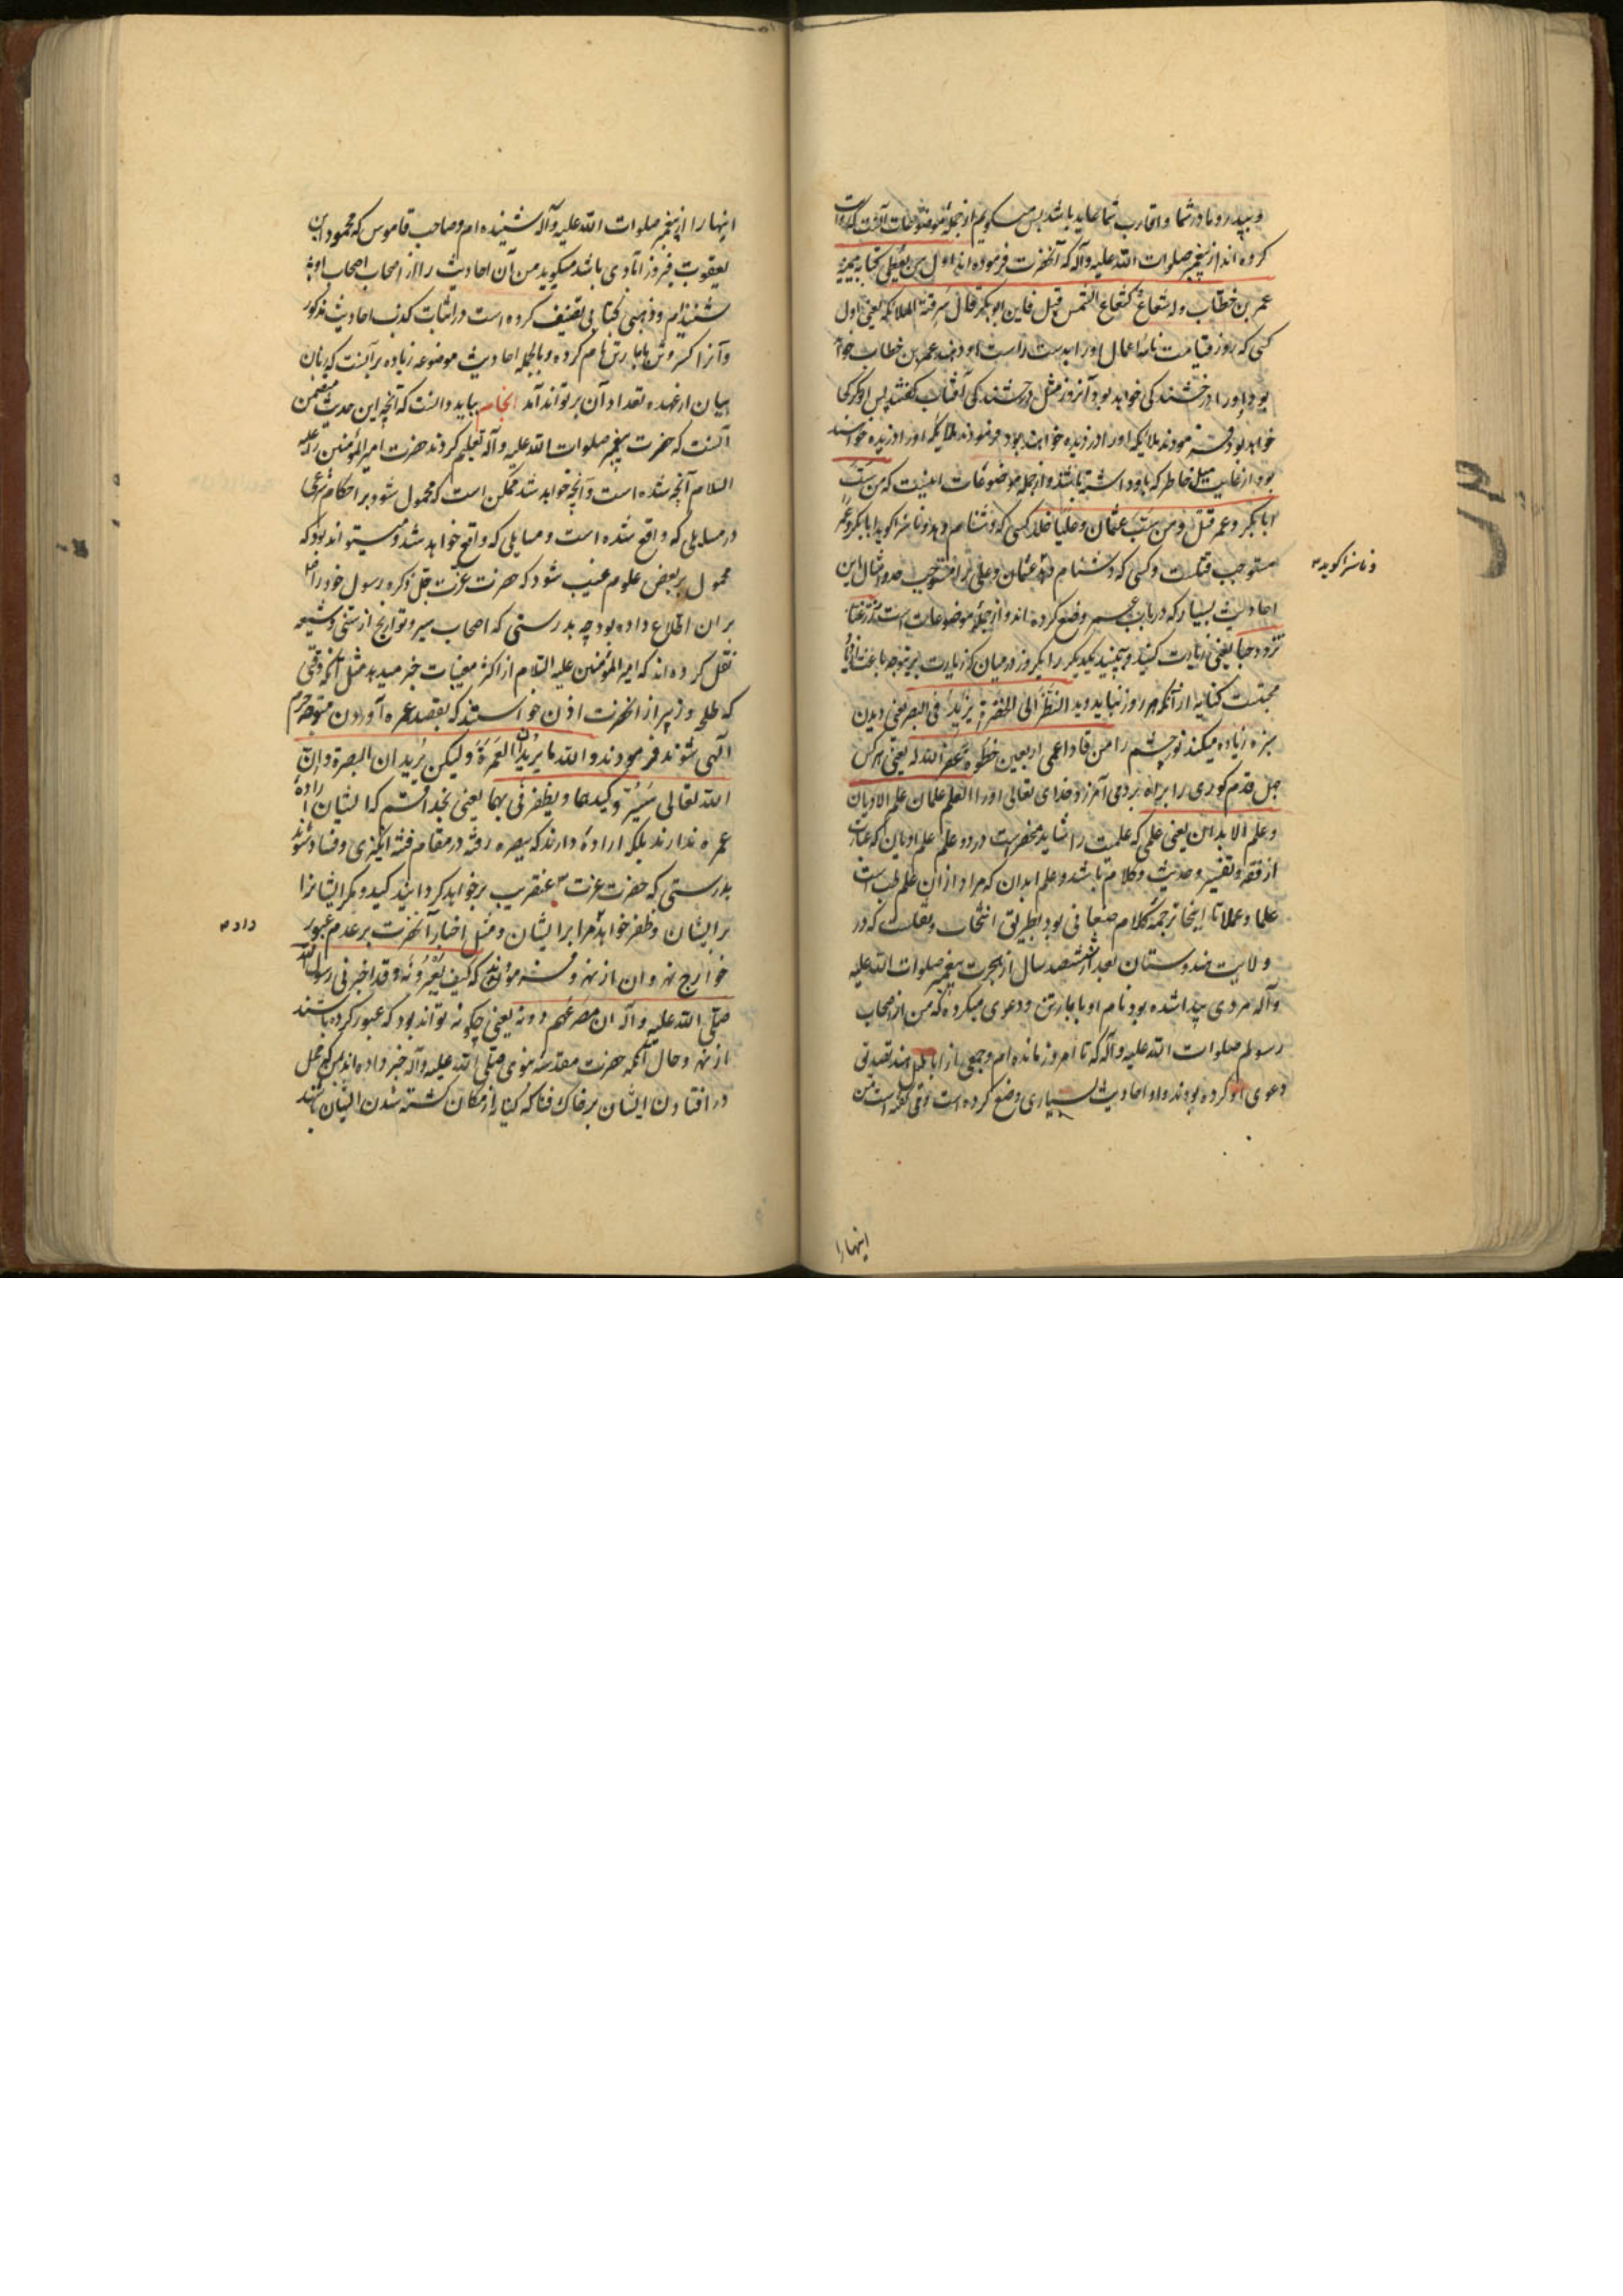 و بپدر و مادر شما و اقارب شما عاید باشد پس میگویم از جمله موضوعات آنست که روایت
کرده‌اند از پیغمبر صلوات الله علیه و آله که آنحضرت فرموده‌اند اول من یعطی کتابه بیمینه
عمر بن خطاب وله شعاع کشعاع الشمس قیل فاین ابوبکر قال سرقته الملائکه یعنی اول
کسی که روز قیامت نامهٔ اعمال او را بدست راست او دهند عمر بن خطاب خواهد
بود و او را درخشندگی خواهد بود آنروز مثل درخشندگی آفتاب گفتند پس ابوبکر کجا
خواهد بود فرمودند ملایکه او را دزدیده خواهند بود
بود از غایت میل خاطر که باو داشته باشند و از جمله موضوعات اینست که من سب
ابا بکر و عمر قتل و من سب عثمان و علیا جلد کسی که دشنام دهد و ناسزا گوید ابابکر و عمر
مستوجب قتلست و کسی که دشنام دهد عثمان و علی را مستوجب حد و امثال این
و ناسزا گوید
احادیث بسیار که در باب عمر وضع کرده‌اند و از جمله موضوعات است زر غبا
تزدد حبا یعنی زیارت کنید و ببینید یکدیگر را یکروز در میان که زیارت بریتوجه باعث ازدیاد
محبتست کنایه از آنکه هر روز نباید دید النظر الی الخضرة یزید فی البصر یعنی دیدن
سبزه زیاده میکند نور چشم را من قاد اعمی اربعین خطوة غفر الله له یعنی هر کس
چهل قدم کوری را براه برد می‌آمرزد خدای تعالی او را العلم علمان علم الادیان
و علم الابدان یعنی علمی که علمیت را شاید منحصرست در دو علم علم ادیان که عبارت
از فقه و تفسیر و حدیث و کلام باشد و علم ابدان که مراد از آن علم طب است
علما و عملا تا اینجا ترجمهٔ کلام صنعانی بود بطریق انتخاب و نقلست که در
ولایت هندوستان بعد از ششصد سال از هجرت پیغمبر صلوات الله علیه
و آله مردی پیدا شده بود نام او بابا رتن و دعوی میکرده که من از اصحاب
رسولم صلوات الله علیه و آله که تا امروز مانده‌ام و جمعی از اهل هند تصدیق
دعوی او کرده بودند و او احادیث بسیاری وضع کرده است و می‌گفته است من
اینها را
اینها را از پیغمبر صلوات الله علیه و آله شنیده‌ام و صاحب قاموس که محمود ابن
یعقوب فیروزآبادی باشد میگوید من آن احادیث را از اصحاب اصحاب او
شنیده‌ام و ذهبی کتابی تصنیف کرده است در اثبات کذب احادیث مذکور
و آنرا کسر وثن بابا رتن نام کرده و بالجمله احادیث موضوعه زیاده بر آنست که زبان
بیان از عهده تعداد آن بر تواند آمد انجام بباید دانست که آنچه این حدیث متضمن
آنست که حضرت پیغمبر صلوات الله علیه و آله تعلیم کردند حضرت امیرالمؤمنین را علیه
السلام آنچه شده است و آنچه خواهد شد ممکن است که محمول شود بر احکام شرعی
در مسایلی که واقع شده است و مسایلی که واقع خواهد شد و میتواند بود که
محمول بر بعض علوم غیب شود که حضرت عزت جل ذکره رسول خود را
بر ان اطلاع داده بود چه بدرستی که اصحاب سیر و تواریخ از سنی و شیعه
نقل کرده‌اند که امیرالمؤمنین علیه السلام از اکثر مغیبات خبر میدهد مثل آنکه وقتی
که طلحه و زبیر از آنحضرت اذن خواستند که بقصد عمره آوردن متوجه حرم
الهی شوند فرمودند والله ما یریدان العمرة ولیکن یریدان البصرة و ان
الله تعالی سیرد کیدهما و یظفرنی بهما یعنی بخدا قسم که ایشان ارادهٔ
عمره ندارند بلکه ارادهٔ دارند که ببصره رفته در مقام فتنه انگیزی و فساد شوند
بدرستی که حضرت عزت عنقریب برخواهد گردانید کید و مکر ایشانرا
بر ایشان و ظفر خواهد مرا بر ایشان و مثل اخبار آنحضرت بر عدم عبور
داد
خوارج نهروان از نهر و فرمودند که کیف یعبرونه و قد اخبرنی رسول الله
صلی الله علیه و آله ان مصرعهم دونه یعنی چگونه تواند بود که عبور کرده باشند
از نهر و حال آنکه حضرت مقدسه نبوی صلی الله علیه و آله خبر داده‌اند من که محل
در افتادن ایشان بر خاک فنا که کنایه از مکان کشته شدن ایشان باشد